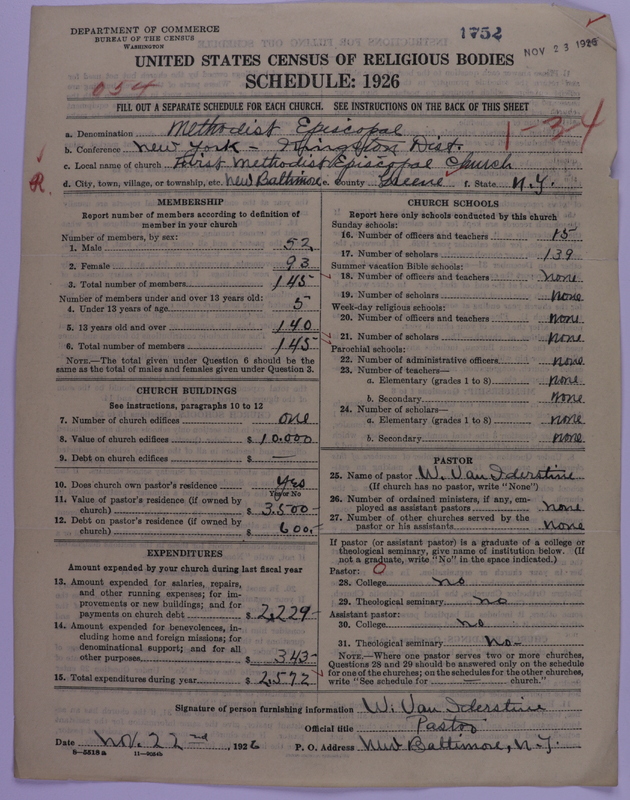 DEPARTMENT OF COMMERCE
BUREAU OF THE CENSUS
WASHINGTON
1752
NOV 23 1926
UNITED STATES CENSUS OF RELIGIOUS BODIES
SCHEDULE: 1926
054
FILL OUT A SEPARATE SCHEDULE FOR EACH CHURCH. SEE INSTRUCTIONS ON THE BACK OF THIS SHEET
a. Denomination Methodist Episcopal
1-34
b. Conference New York - Kingston Dist.
c. Local name of church First Methodist Episcopal Church
R. d. City, town, village, or township, etc. New Baltimore e. County Greene f. State N.Y.
MEMBERSHIP
Report number of members according to definition of member in your church
Number of members, by sex:
1. Male 52
2. Female 93
3. Total number of members 145
Number of members under and over 13 years old:
4. Under 13 years of age 5
5. 13 years old and over 140
6. Total number of members 145
NOTE.—The total given under Question 6 should be the same as the total of males and females given under Question 3.
CHURCH BUILDINGS
See instructions, paragraphs 10 to 12
7. Number of church edifices one
8. Value of church edifices $ 10.000
9. Debt on church edifices $ —
10. Does church own pastor's residence Yes
Yes or No
11. Value of pastor's residence (if owned by church) $ 3.500
12. Debt on pastor's residence (if owned by church) $ 600
EXPENDITURES
Amount expended by your church during last fiscal year
13. Amount expended for salaries, repairs, and other running expenses; for improvements or new buildings; and for payments on church debt $ 2,229
14. Amount expended for benevolences, including home and foreign missions; for denominational support; and for all other purposes $ 343
15. Total expenditures during year $ 2.572
CHURCH SCHOOLS
Report here only schools conducted by this church
Sunday schools:
16. Number of officers and teachers 15
17. Number of scholars 139
Summer vacation Bible schools:
18. Number of officers and teachers None
19. Number of scholars None
Week-day religious schools:
20. Number of officers and teachers None
21. Number of scholars None
Parochial schools:
22. Number of administrative officers None
23. Number of teachers—
a. Elementary (grades 1 to 8) None
b. Secondary None
24. Number of scholars—
a. Elementary (grades 1 to 8) None
b. Secondary None
PASTOR
25. Name of pastor W. Van Iderstine
(If church has no pastor, write "None")
26. Number of ordained ministers, if any, employed as assistant pastors None
27. Number of other churches served by the pastor or his assistants None
If pastor (or assistant pastor) is a graduate of a college or theological seminary, give name of institution below. (If not a graduate, write "No" in the space indicated.)
Pastor: O
28. College no
29. Theological seminary no
Assistant pastor:
30. College no
31. Theological seminary No-
NOTE.—Where one pastor serves two or more churches, Questions 28 and 29 should be answered only on the schedule for one of the churches; on the schedules for the other churches, write "See schedule for — church."
Signature of person furnishing information W. Van Iderstine
Official title Pastor
Date Nov. 22nd, 1926 P. O. Address New Baltimore, N.Y.